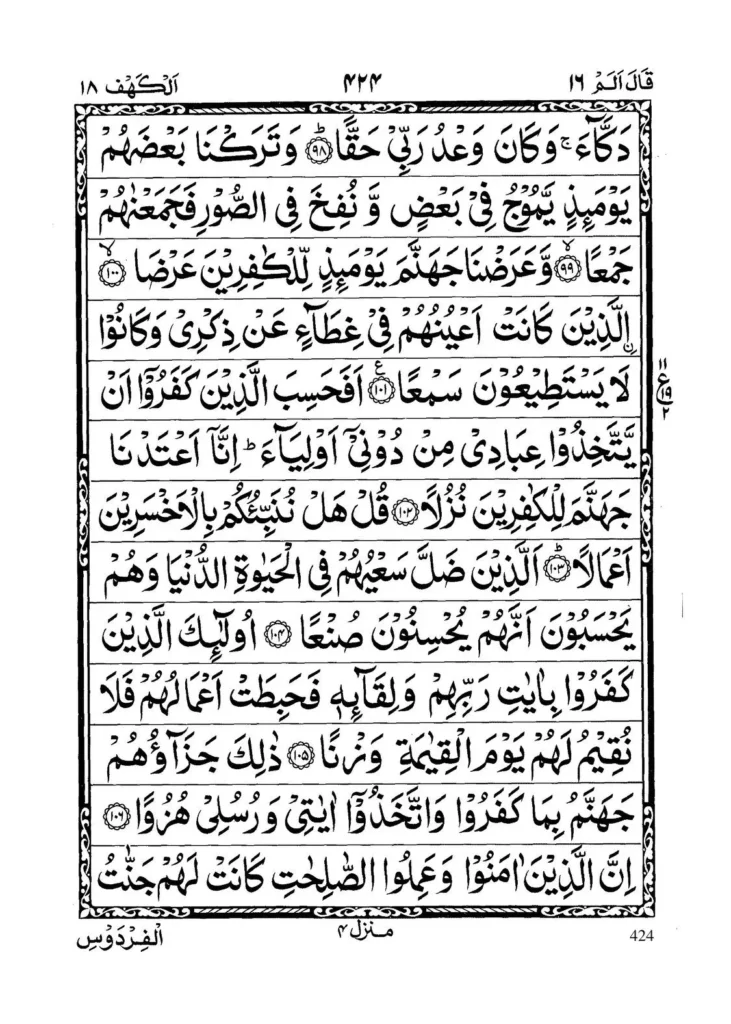 قَالَ اَلَمْ ١٦ ٤٢٤ اَلْكَهْف ١٨
دَكَّآءَ ۚ وَكَانَ وَعْدُ رَبِّيْ حَقًّا ؕ ﴿٩٨﴾ وَتَرَكْنَا بَعْضَهُمْ
يَوْمَئِذٍ يَّمُوْجُ فِيْ بَعْضٍ وَّ نُفِخَ فِي الصُّوْرِ فَجَمَعْنٰهُمْ
جَمْعًا ۙ ﴿٩٩﴾ وَّعَرَضْنَا جَهَنَّمَ يَوْمَئِذٍ لِّلْكٰفِرِيْنَ عَرْضَا ۙ ﴿١٠٠﴾
اِلَّذِيْنَ كَانَتْ اَعْيُنُهُمْ فِيْ غِطَآءٍ عَنْ ذِكْرِيْ وَكَانُوْا
لَا يَسْتَطِيْعُوْنَ سَمْعًا ﴿١٠١﴾ ع اَفَحَسِبَ الَّذِيْنَ كَفَرُوْٓا اَنْ
١١ ع ١٩ ٢
يَّتَّخِذُوْا عِبَادِيْ مِنْ دُوْنِيْٓ اَوْلِيَآءَ ؕ اِنَّآ اَعْتَدْنَا
جَهَنَّمَ لِلْكٰفِرِيْنَ نُزُلًا ﴿١٠٢﴾ قُلْ هَلْ نُنَبِّئُكُمْ بِالْاَخْسَرِيْنَ
اَعْمَالًا ؕ ﴿١٠٣﴾ اَلَّذِيْنَ ضَلَّ سَعْيُهُمْ فِي الْحَيٰوةِ الدُّنْيَا وَهُمْ
يَحْسَبُوْنَ اَنَّهُمْ يُحْسِنُوْنَ صُنْعًا ﴿١٠٤﴾ اُولٰٓئِكَ الَّذِيْنَ
كَفَرُوْا بِاٰيٰتِ رَبِّهِمْ وَلِقَآئِهٖ فَحَبِطَتْ اَعْمَالُهُمْ فَلَا
نُقِيْمُ لَهُمْ يَوْمَ الْقِيٰمَةِ وَزْنًا ﴿١٠٥﴾ ذٰلِكَ جَزَآؤُهُمْ
جَهَنَّمُ بِمَا كَفَرُوْا وَاتَّخَذُوْٓا اٰيٰتِيْ وَرُسُلِيْ هُزُوًا ﴿١٠٦﴾
اِنَّ الَّذِيْنَ اٰمَنُوْا وَعَمِلُوا الصّٰلِحٰتِ كَانَتْ لَهُمْ جَنّٰتُ
الْفِرْدَوْسِ منزل ٤ 424